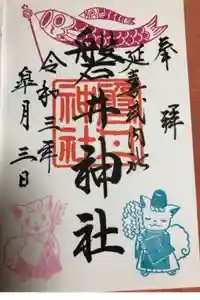 奉拝
延喜式内社
磐井神社
令和三年
皐月三日